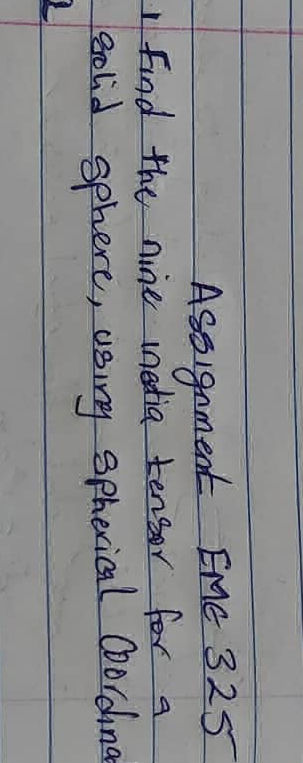 Assignment EME 325
1 Find the nine inertia tensor for a
solid sphere, using spherical Coordina
2